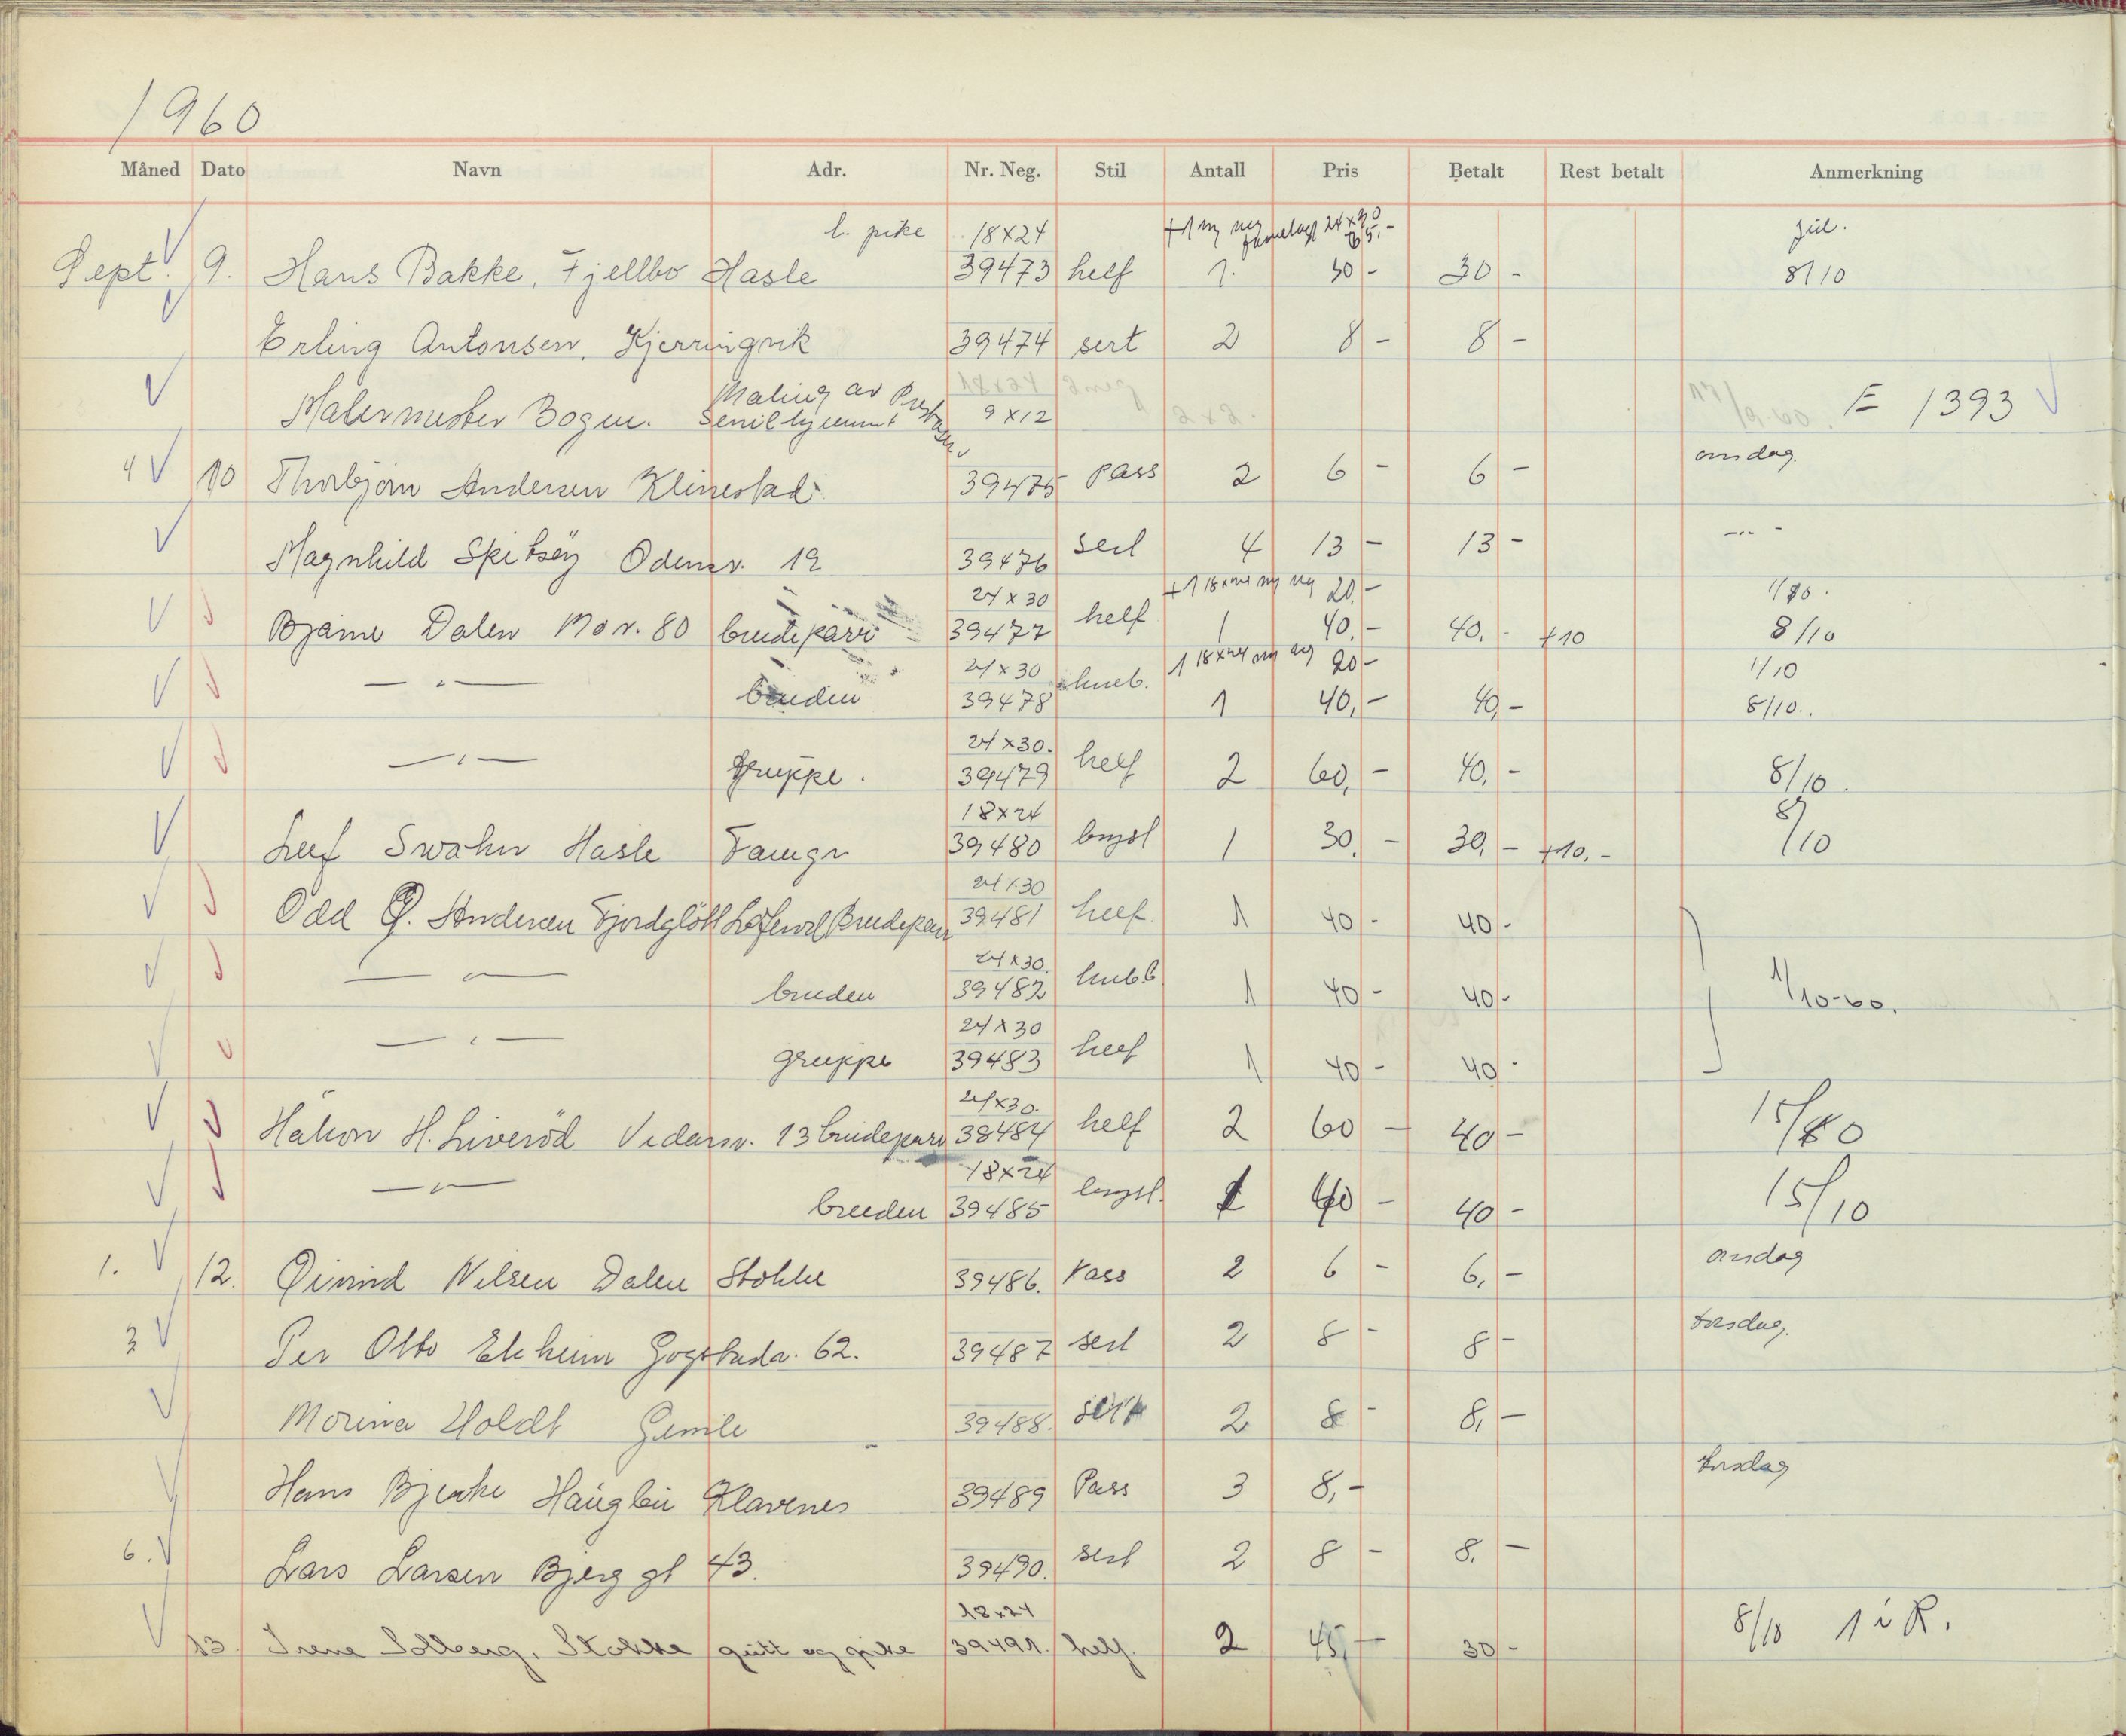 1960
Måned Dato Navn Adr. Nr. Neg. Stil Antall Pris Betalt Rest betalt Anmerkning
l. pike 18x24 +1 ny neg 24x30 65,-
Sept. 9. Hans Bakke, Fjellbo Hasle 39473 helf 1. 30 - 30 - 8/10
Erling Antonsen, Kjerringvik 39474 sert 2 8 - 8 -
Maling av
Malermester Bogen. 9x12 E 1393
4 10 Thorbjørn Andersen Klinestad 39475 pass 2 6 - 6 - onsdag.
Magnhild Spitsøy Odinsv. 12 39476 sert 4 13 - 13 - -"-
24x30 +1 18x24 ny neg 20,-
Bjarne Dalen Mov. 80 brudeparr 39477 helf 1 40,- 40,- +10 8/10
24x30 1 18x24 ny neg 20- 1/10
-"- bruden 39478 kneb. 1 40,- 40,- 8/10.
24x30.
-"- gruppe. 39479 helf 2 60,- 40,- 8/10.
18x24
Leif Swahn Hasle Famgr 39480 bryst 1 30,- 30,- +10.- 8/10
24x30
Odd Andersen Fjordgløtt Brudepar 39481 helf. 1 40 - 40 -
24x30.
-"- bruden 39482 1 40 - 40 - 1/10-60.
24x30
-"- gruppe 39483 helf 1 40 - 40 -
24x30.
Håkon H. Liverød Vidarsv. 13 brudeparr 38484 helf 2 60 - 40 -
18x24
-"- bruden 39485 bryst. 40 - 40 - 15/10
1. 12. Øivind Nilsen Dalen Stokke 39486. Pass 2 6 - 6,- onsdag
3 Per Otto Ekheim Gogstadv. 62. 39487 sert 2 8 - 8 - torsdag.
Holdt Gimle 39488. sert 2 8 - 8,-
Hans Bjerke Klavenes 39489 Pass 3 8,- torsdag
6. Lars Larsen Bjerggt 43. 39490. sert 2 8 - 8. -
18x24
13. Irene Solberg, Stokke gutt og pike 39491. helf. 2 45,- 30 - 8/10 1 i R.